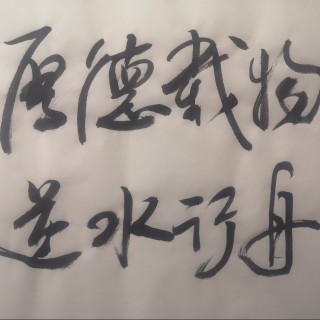 厚德载物
逆水行舟